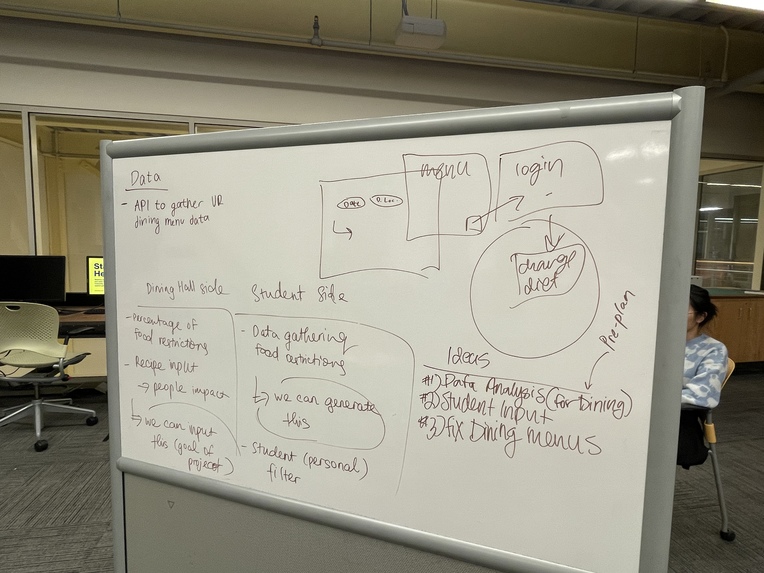 Data
- API to gather UR
dining menu data
Date
D. Loc
menu
login
change
diet
Dining Hall side
- Percentage of
food restrictions
- Recipe input
→ people impact
↳ we can input
this (goal of
project)
Student Side
- Data gathering
food restrictions
↳ we can generate
this
- Student (personal)
filter
Pre-plan
Ideas
#1) Data Analysis (for Dining)
#2) Student Input
#3) Fix Dining menus